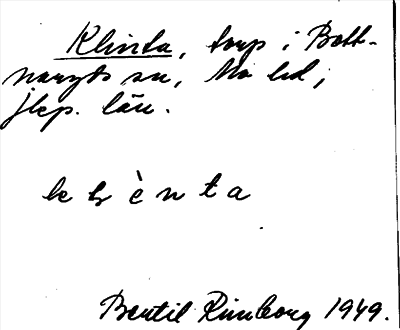 Klinta, torp i Bott-
naryds sn, Mo hd,
Jkp. län.
Bertil Rimborg 1949.